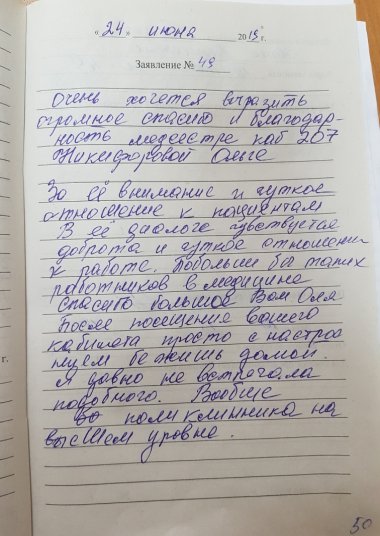 « 24 » июня 2019 г.
Заявление № 49
Очень хочется выразить
огромное спасибо и благодар-
ность медсестре каб 207
Никифоровой Ольге
За её внимание и чуткое
отношение к пациентам
В её диалоге чувствуется
доброта и чуткое отношении
к работе. Побольше бы таких
работников в медицине
Спасибо большое Вам Оля
После посещение вашего
кабинета просто с настрое
нием бежишь домой.
Я давно не встречала
подобного. Вообще
поликлинника на
высшем уровне.
г.
50